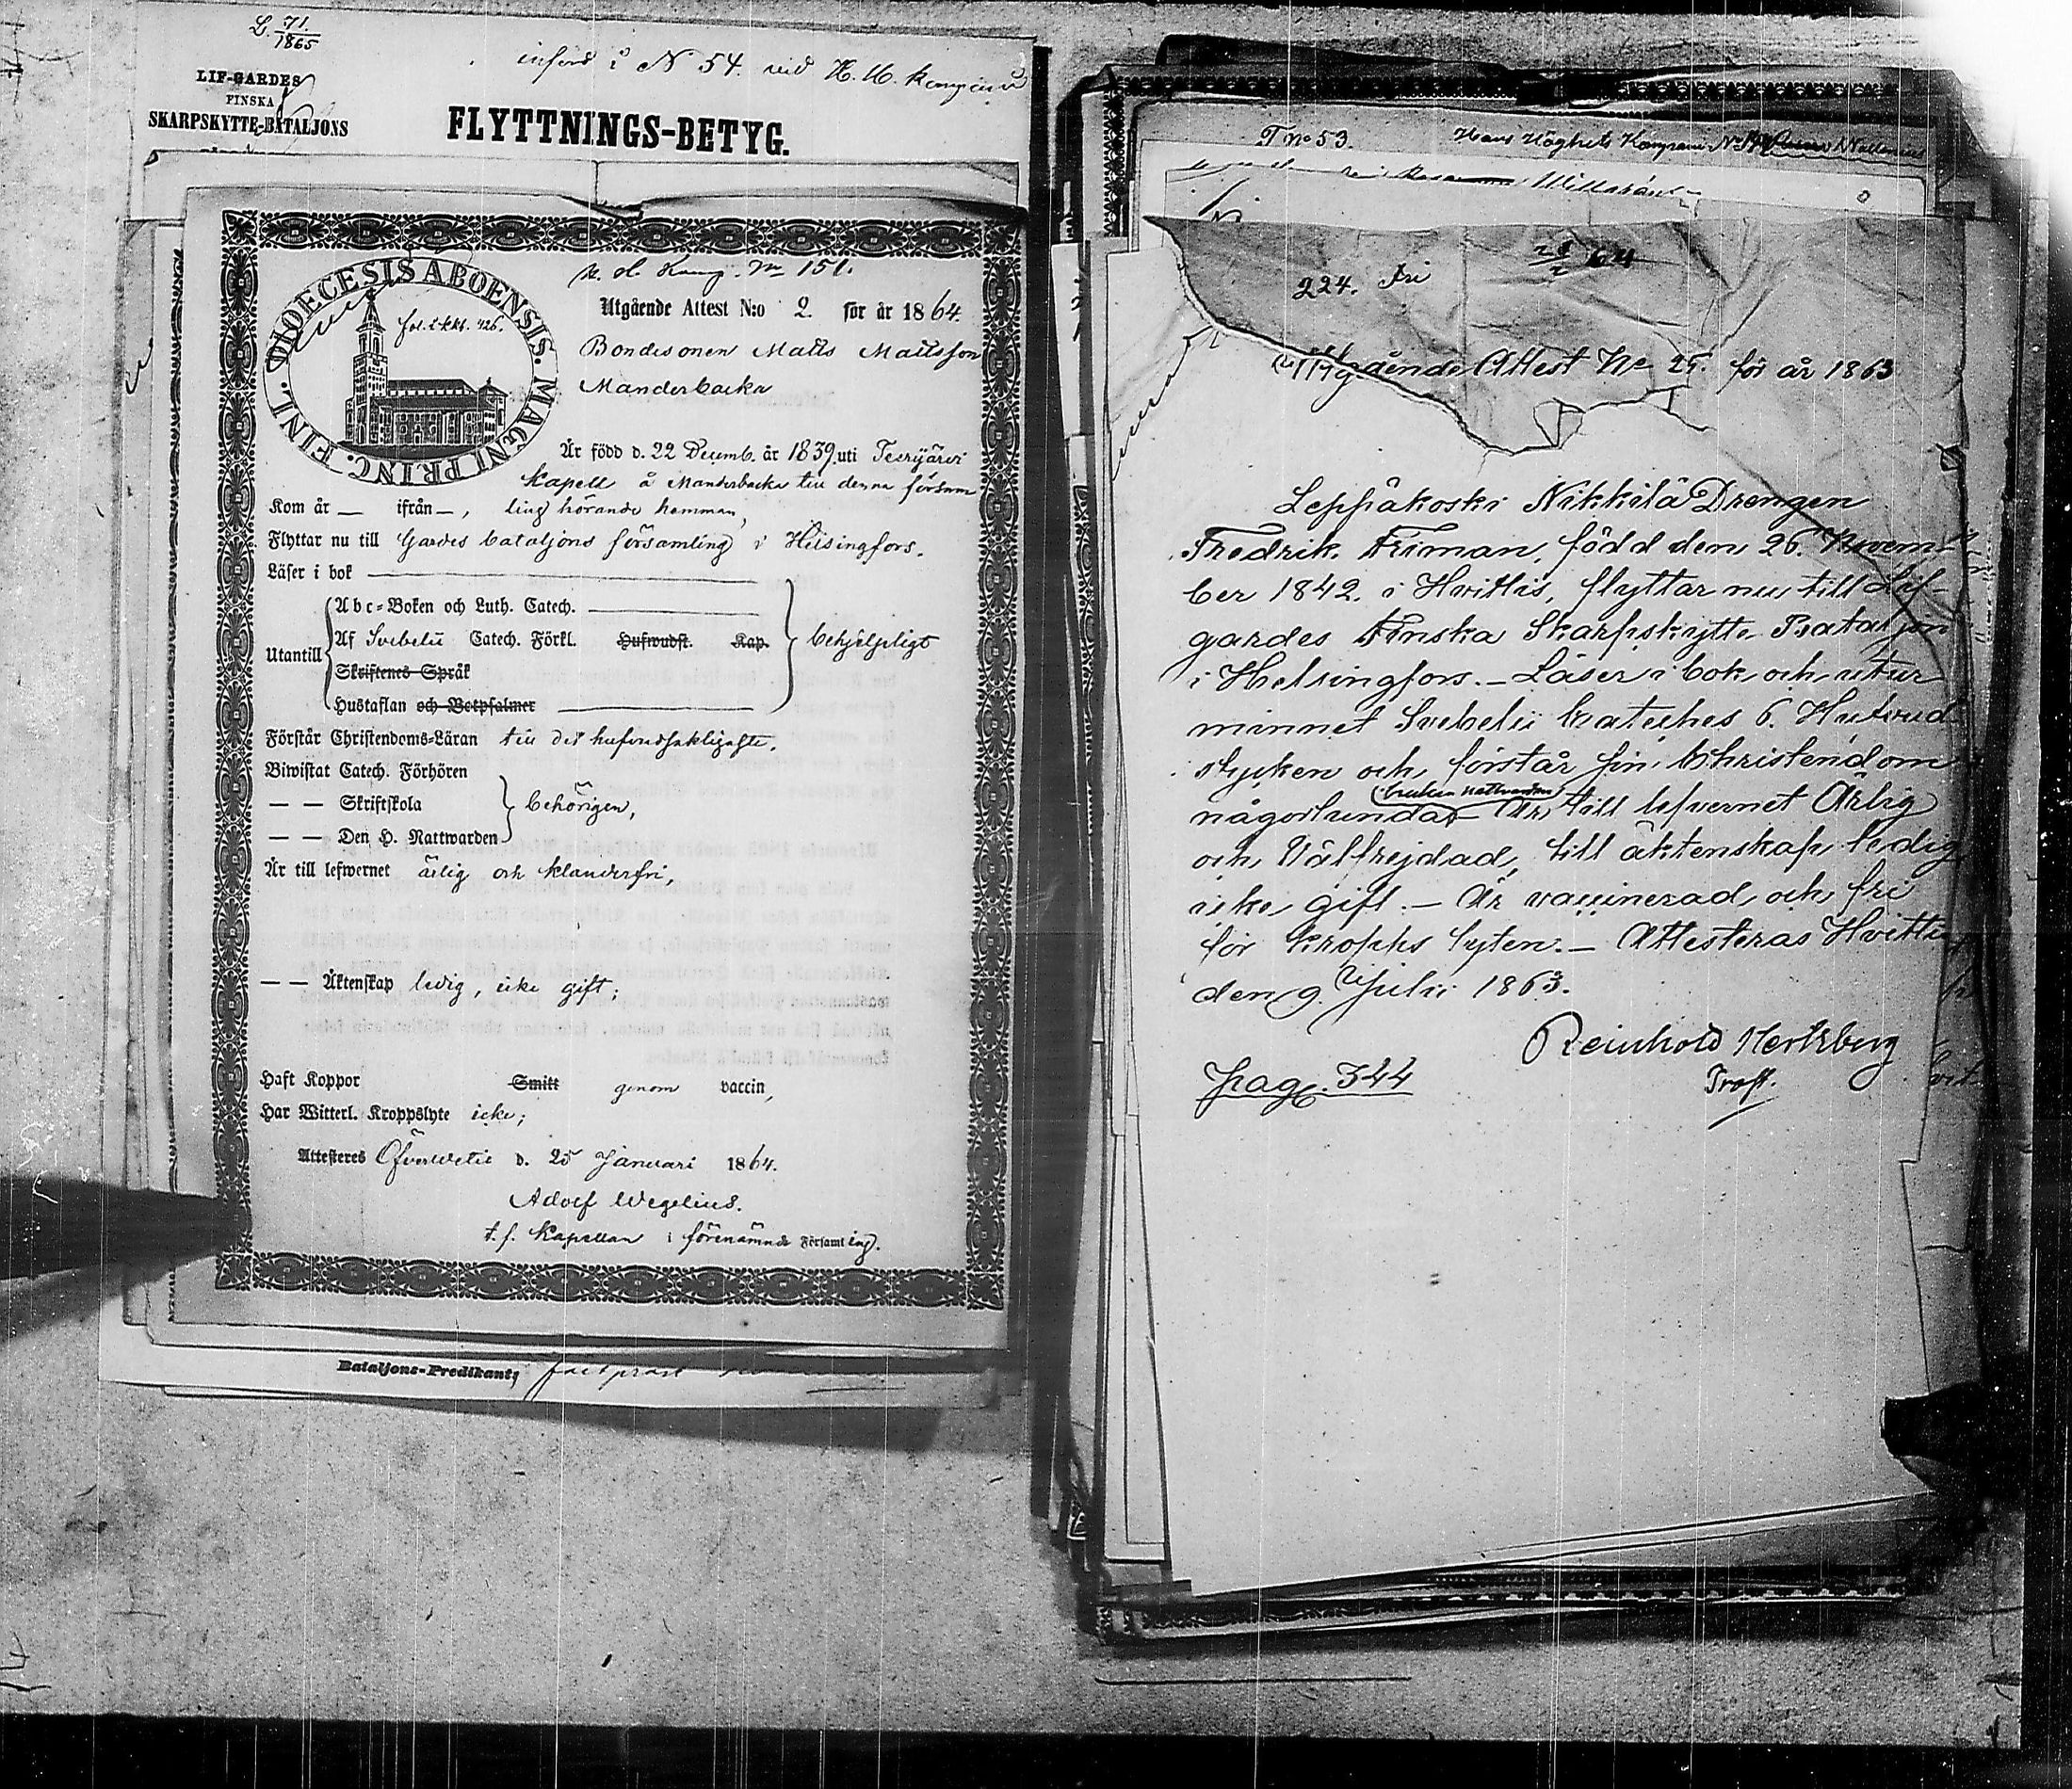 L. 71/1865
LIF-GARDES
FINSKA
SKARPSKYTTE-BATALJONS
införd i N 54. vid H. H. Kompani
FLYTTNINGS-BETYG.
DIOECESIS ABOENSIS. MAGNI PRINC. FINL.
H. H. Komp. No 151.
Utgående Attest N:o 2. för år 1864.
Bondesonen Matts Mattsson
Manderbacka
Är född d. 22 Decemb. år 1839. uti Teerijärvi
kapell å Manderbacka till denna försam
Kom år — ifrån —, ling hörande hemman,
Flyttar nu till Gardes bataljons församling i Helsingfors.
Läser i bok
Utantill
Abc-Boken och Luth. Catech.
Af Svebelii Catech. Förkl. Hufwudst. Kap.
behjelpligt
Skriftenes Språk
Hustaflan och Botpsalmer
Förstår Christendoms-Läran till det hufvudsakligaste.
Biwistat Catech. Förhören
— — Skriftskola
behörigen,
— — Den H. Nattwarden
Är till lefwernet ärlig och klanderfri,
— — Äktenskap ledig, icke gift;
Haft Koppor Smitt genom vaccin,
Har Witterl. Kroppslyte icke;
Attesteres Öfvervetil d. 25 Januari 1864.
Adolf Wegelius.
t. f. Kapellan i förenämnde Församling.
Bataljons-Predikant,
T No 53. Hans Höghets Kompani No
224. Fri
Utgående Attest No 25. för år 1863
Leppäkoski Nikkilä Drengen
Fredrik Friman, född den 26. Novem-
ber 1842. i Hvittis, flyttar nu till Lif-
gardes Finska Skarpskytte Bataljon
i Helsingfors. — Läser i bok och utur
minnet Svebelii kateches 6. Hufvud
stycken och förstår sin Christendom
brukar nattvarden
någorlunda — Är till lefvernet Ärlig
och Välfrejdad, till äktenskap ledig
icke gift. — Är vaccinerad och fri
för kropps lyten. — Attesteras Hvittis
den 9. Julii 1863.
Reinhold Hertzberg
Prost.
pag. 344